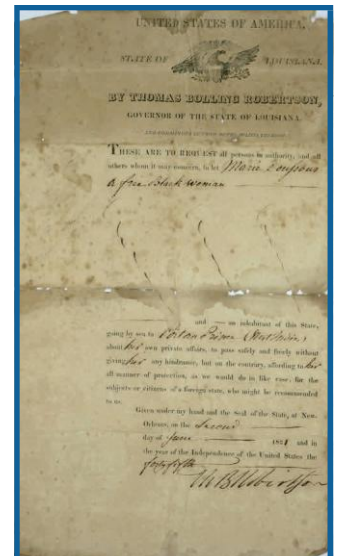 UNITED STATES OF AMERICA.
STATE OF LOUISIANA.
BY THOMAS BOLLING ROBERTSON,
GOVERNOR OF THE STATE OF LOUISIANA.
THESE ARE TO REQUEST all persons in authority, and all
others whom it may concern, to let Marie
a free black woman
and an inhabitant of this State,
going by sea to Port au Prince
about her own private affairs, to pass safely and freely without
giving her any hindrance, but on the contrary, affording to her
all manner of protection, as we would do in like case, for the
subjects or citizens of a foreign state, who might be recommended
to us.
Given under my hand and the Seal of the State, at New-
Orleans, on the Second
day of June 1821 and in
the year of the Independence of the United States the
forty fifth
Th B Robertson